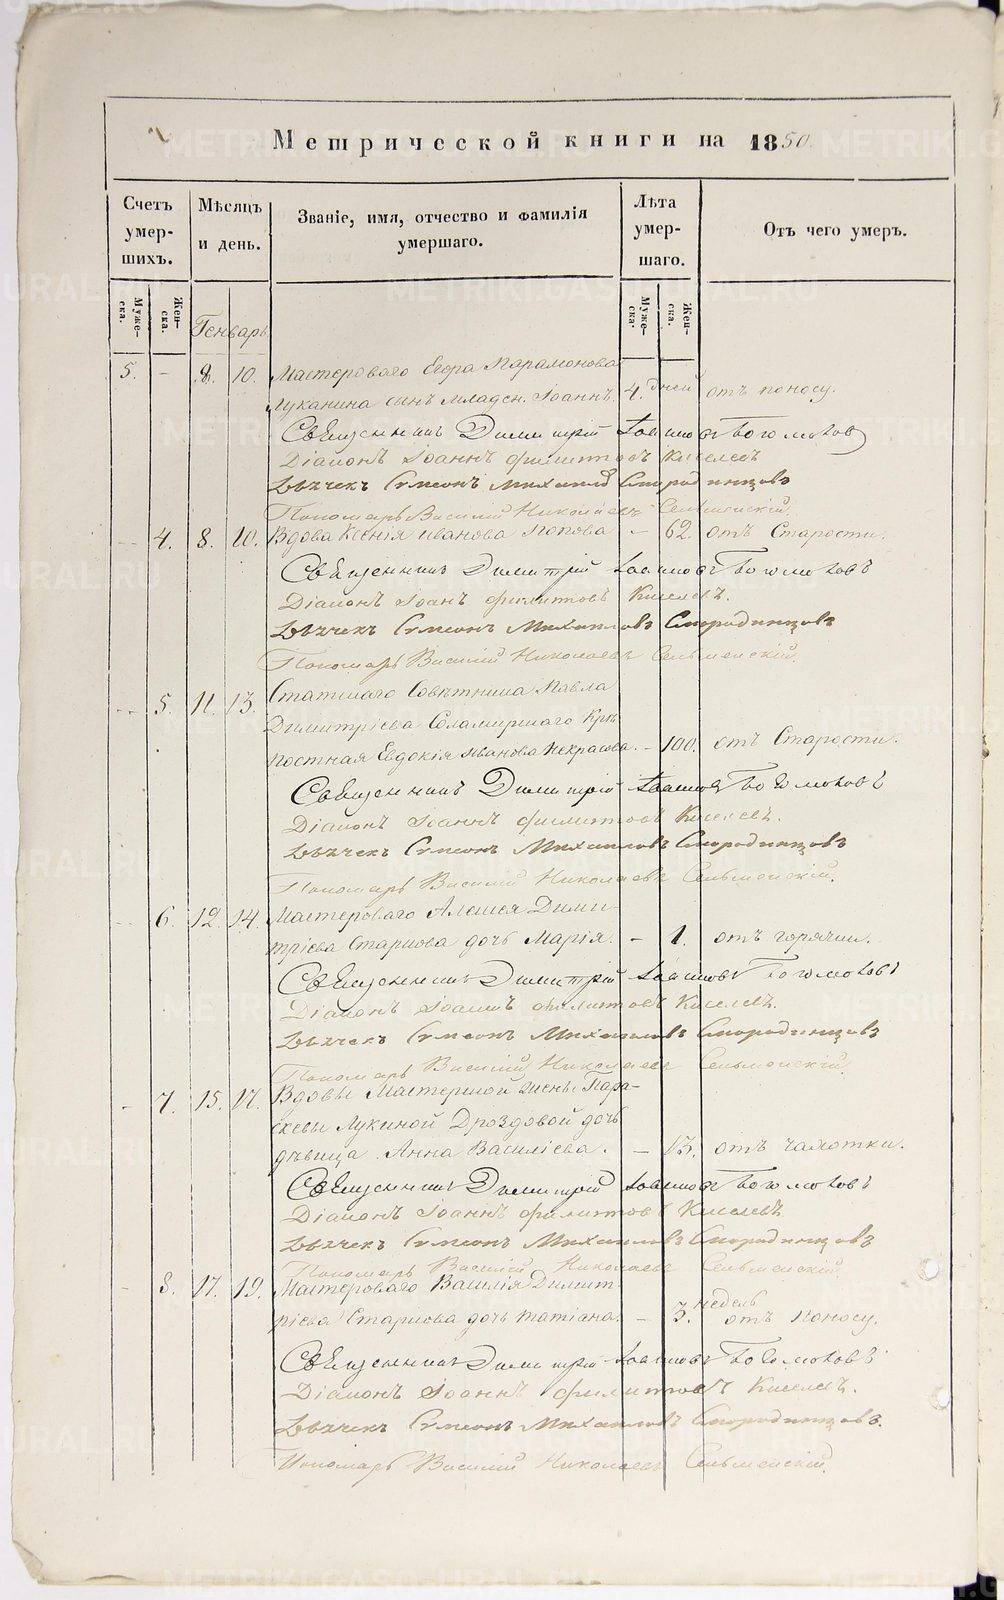 Метрической книги на 1850.
Счетъ умер- шихъ.
Мѣсяцъ и день.
Званіе, имя, отчество и фамилія умершаго.
Лѣта умер- шаго.
Отъ чего умеръ.
Муже- ска.
Жен- ска.
Генварь
Муже- ска.
Жен- ска.
5. - 8. 10. Мастероваго Егора Парамонова
Луканина сынъ младен. Іоаннъ. 4. дней отъ поносу.
Священникъ Димитрій Іоанновъ Богомоловъ
Діаконъ Іоаннъ Филиповъ Киселевъ
Дьячекъ Сумеонъ Михаиловъ Смородинцовъ
Пономарь Василій Николаевъ Сельменскій.
4. 8. 10. Вдова Ксенія Иванова Попова - 62. отъ Старости.
Священникъ Димитрій Іоанновъ Богомоловъ
Діаконъ Іоанъ Филиповъ Киселевъ.
Дьячекъ Сумеонъ Михаиловъ Смородинцовъ
Пономарь Василій Николаевъ Сельменскій.
5. 11. 13. Статскаго Совѣтника Павла
Димитріева Соломирскаго Крѣ
постная Евдокія Иванова Некрасова. - 100. отъ Старости.
Священникъ Димитрій Іоанновъ Богомоловъ
Діаконъ Іоаннъ Филиповъ Киселевъ.
Дьячекъ Сумеонъ Михаиловъ Смородинцовъ
Пономарь Василій Николаевъ Сельменскій.
6. 12. 14. Мастероваго Алексея Дими-
тріева Старкова дочь Марія. - 1. отъ горячки.
Священникъ Димитрій Іоанновъ Богомоловъ
Діаконъ Іоаннъ Филиповъ Киселевъ.
Дьячекъ Сумеонъ Михаиловъ Смородинцовъ
Пономарь Василій Николаевъ Сельменскій.
- 7. 15. 17. Вдовы Мастерской жены Пара-
скевы Лукиной Дроздовой дочь
дѣвица Анна Василіева. - 13. отъ чахотки.
Священникъ Димитрій Іоанновъ Богомоловъ
Діаконъ Іоаннъ Филиповъ Киселевъ
Дьячекъ Сумеонъ Михаиловъ Смородинцовъ
Пономарь Василій Николаевъ Сельменскій
- 8. 17. 19. Мастероваго Василія Димит-
ріева Старкова дочь Татіана. - 3. недель отъ поносу.
Священникъ Димитрій Іоанновъ Богомоловъ
Діаконъ Іоаннъ Филиповъ Киселевъ.
Дьячекъ Сумеонъ Михаиловъ Смородинцовъ.
Пономарь Василій Николаевъ Сельменскій.